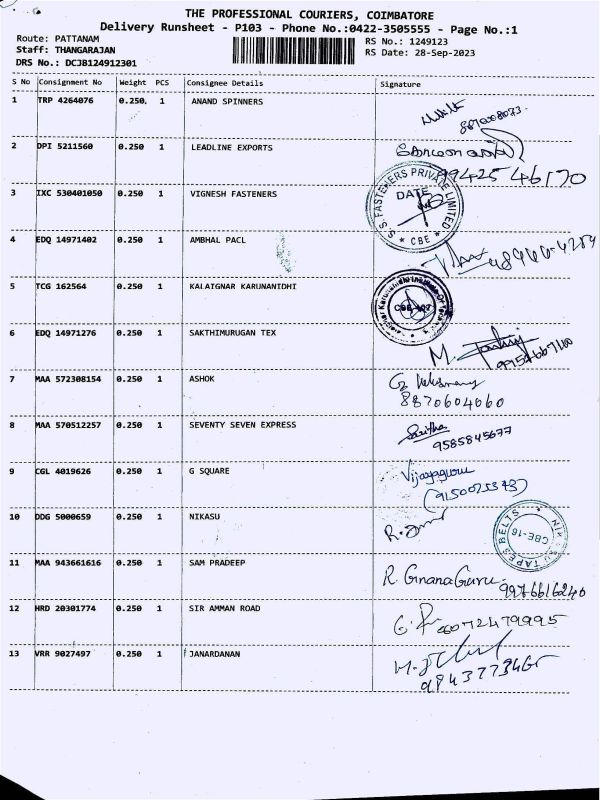 THE PROFESSIONAL COURIERS, COIMBATORE
Delivery Runsheet - P103 - Phone No.:0422-3505555 - Page No.:1
Route: PATTANAM
Staff: THANGARAJAN
DRS No.: DCJB124912301
RS No.: 1249123
RS Date: 28-Sep-2023
S No Consignment No Weight PCS Consignee Details Signature
1 TRP 4264076 0.250 1 ANAND SPINNERS
2 DPI 5211560 0.250 1 LEADLINE EXPORTS
99425 46170
3 IXC 530401050 0.250 1 VIGNESH FASTENERS
S.S. FASTENERS PRIVATE LIMITED
DATE
* CBE *
4 EDQ 14971402 0.250 1 AMBHAL PACL
5 TCG 162564 0.250 1 KALAIGNAR KARUNANIDHI
6 EDQ 14971276 0.250 1 SAKTHIMURUGAN TEX
7 MAA 572308154 0.250 1 ASHOK
8870604060
8 MAA 570512257 0.250 1 SEVENTY SEVEN EXPRESS
Saritha
9585845677
9 CGL 4019626 0.250 1 G SQUARE
Vijayaguru
10 DDG 5000659 0.250 1 NIKASU
TAPES BELTS
CBE-16
11 MAA 943661616 0.250 1 SAM PRADEEP
R GnanaGuru
9976616240
12 HRD 20301774 0.250 1 SIR AMMAN ROAD
13 VRR 9027497 0.250 1 JANARDANAN